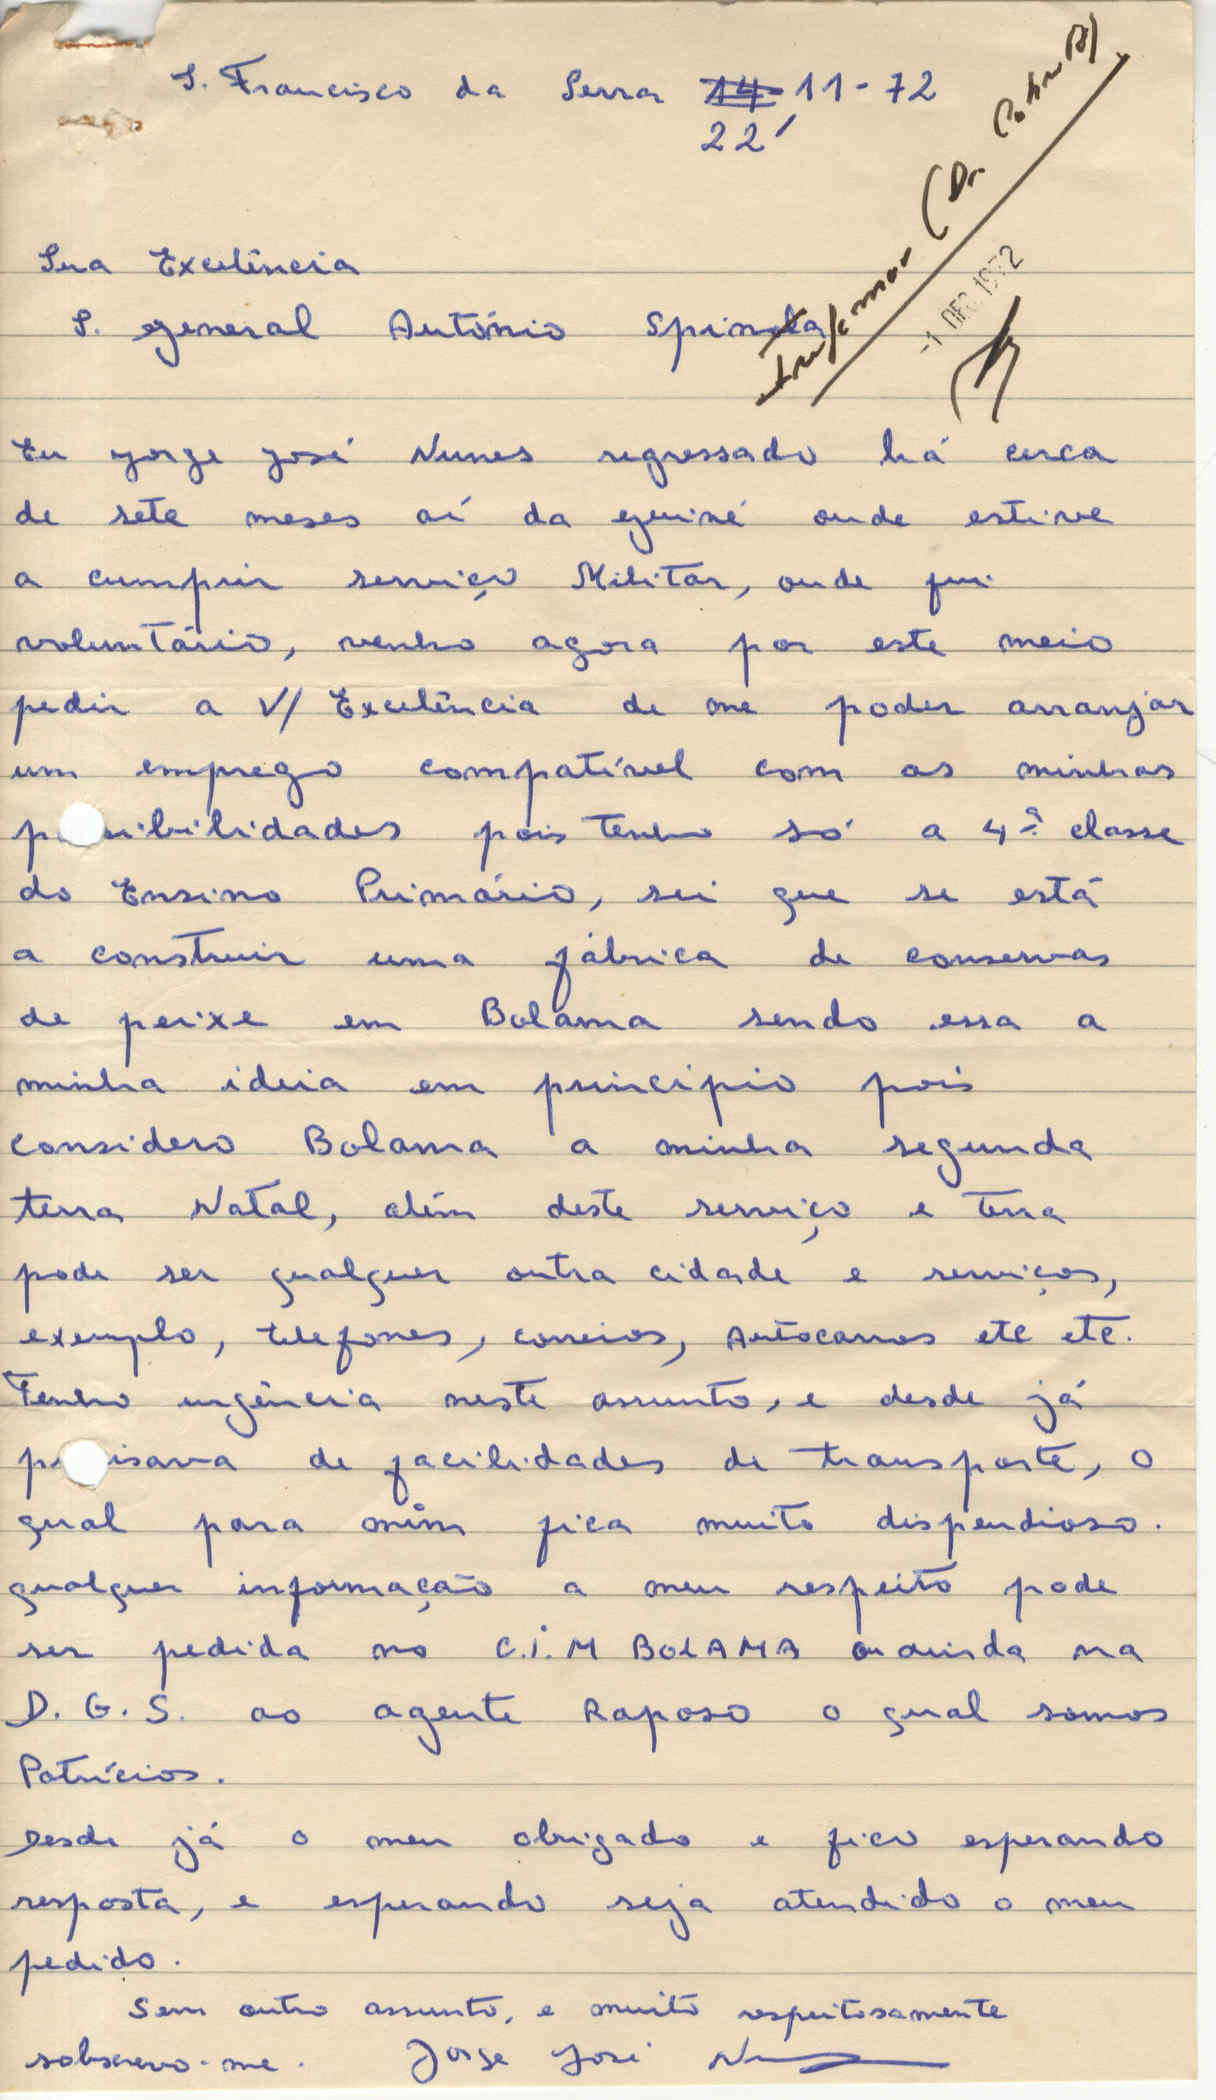 S. Francisco da Serra 14 11-72
22
Informar (Dr.
-1 DEC. 1972
Sua Excelência
S. general António Spinola
Eu jorge josé Nunes regressado há cerca
de sete meses aí da guiné onde estive
a cumprir serviço Militar, onde fui
voluntário, venho agora por este meio
pedir a V/ Excelência de me poder arranjar
um emprego compatível com as minhas
p sibilidades pois tenho só a 4ª classe
do Ensino Primário, sei que se está
a construir uma fábrica de conservas
de peixe em Bolama sendo essa a
minha ideia em principio pois
considero Bolama a minha segunda
terra Natal, além deste serviço e terra
pode ser qualquer outra cidade e serviços,
exemplo, telefones, correios, Autocarros etc etc.
Tenho urgência neste assunto, e desde já
pr isava de facilidades de transporte, o
qual para mim fica muito dispendioso.
qualquer informação a meu respeito pode
ser pedida no C.I.M BOLAMA ou ainda na
D. G. S. ao agente Raposo o qual somos
Patrícios.
Desde já o meu obrigado e fico esperando
resposta, e esperando seja atendido o meu
pedido.
Sem outro assunto, e muito respeitosamente
sobscrevo-me. Jorge José N